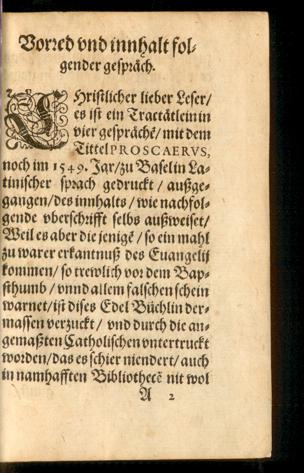 Vorred vnd innhalt fol-
gender gespräch.
CHristlicher lieber Leser/
es ist ein Tractätlein in
vier gespräche͂/ mit dem
Tittel PROSCAERVS,
noch im 1549. Jar/ zu Basel in La-
tinischer sprach gedruckt / außge-
gangen/ des innhalts / wie nachfol-
gende vberschrifft selbs außweiset/
Weil es aber die jenige͂ / so ein mahl
zu warer erkantnuß des Euangelij
kommen/ so trewlich vor dem Bap-
sthumb / vnnd allem falschen schein
warnet/ ist dises Edel Büchlin der-
massen verzuckt / vnd durch die an-
gemaßten Catholischen vntertruckt
worden/ das es schier niendert/ auch
in namhafften Bibliothece͂ nit wol
A 2